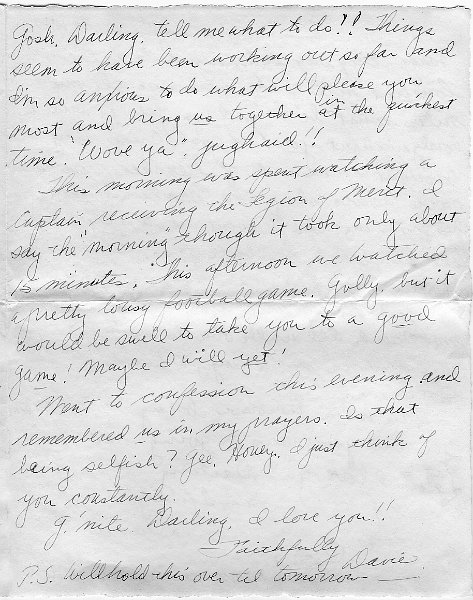 Gosh, Darling, tell me what to do!! Things
seem to have been working out so far and
I'm so anxious to do what will please you
most and bring us together in at the quickest
time. "Wove ya". Jughaid!!
This morning was spent watching a
Captain receiving the Legion of Merit. I
say the "morning" though it took only about
15 minutes. This afternoon we watched
a pretty lousy football game. Golly, but it
would be swell to take you to a good
game! Maybe I will yet!
Went to confession this evening and
remembered us in my prayers. Is that
being selfish? Gee, Honey, I just think of
you constantly.
G'nite Darling, I love you!!
Faithfully
Davie
P.S. Will hold this over til tomorrow